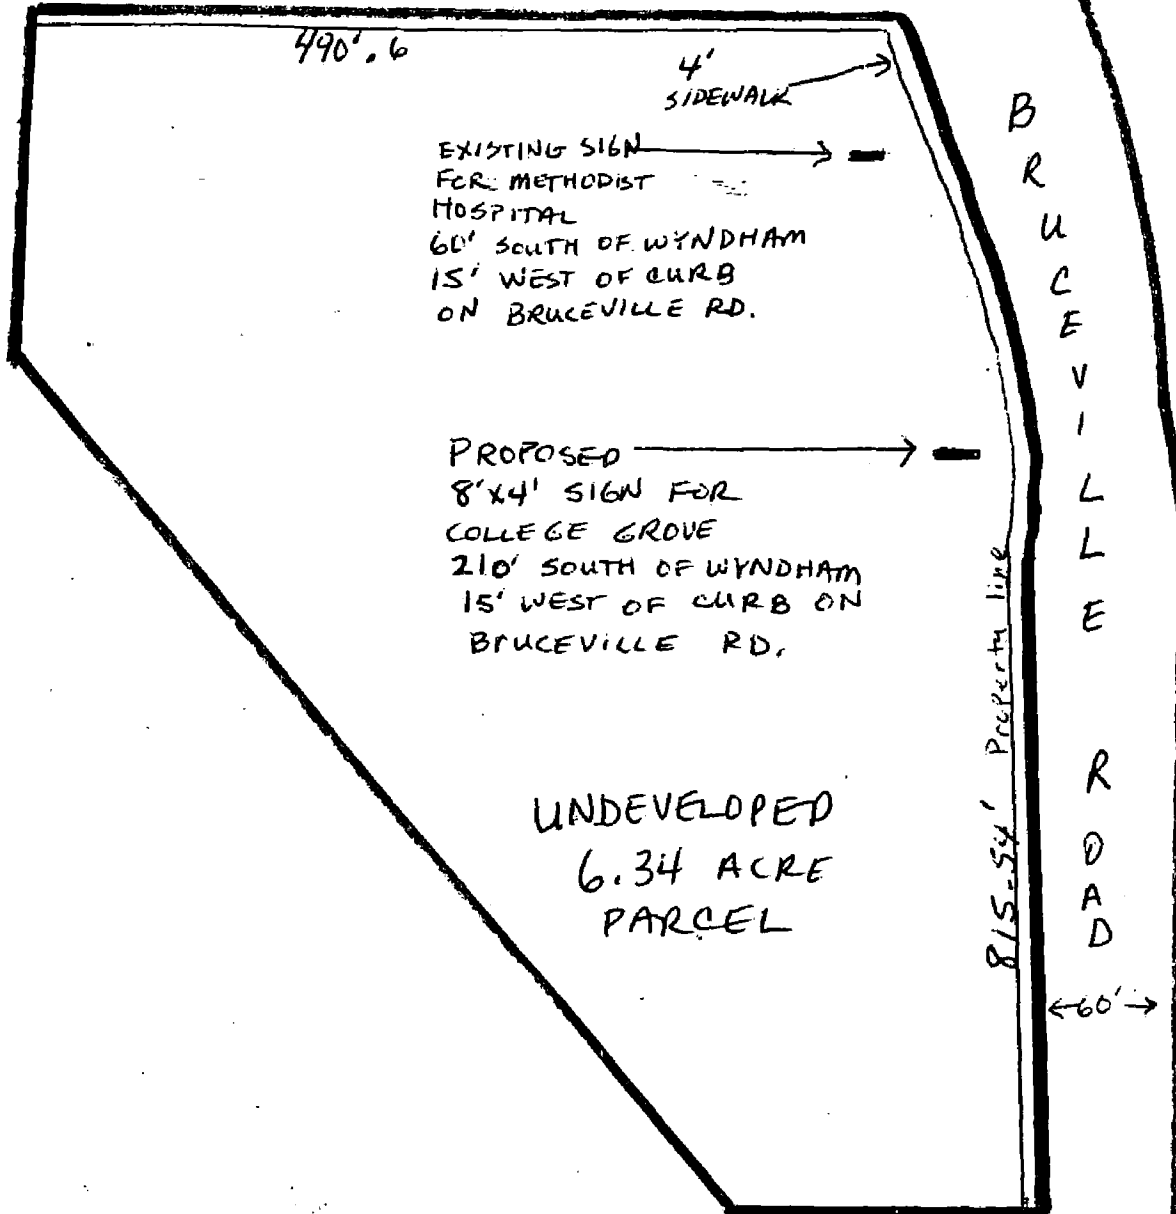 490'.6
4'
SIDEWALK
EXISTING SIGN
FOR: METHODIST
HOSPITAL
60' SOUTH OF WYNDHAM
15' WEST OF CURB
ON BRUCEVILLE RD.
PROPOSED
8'X4' SIGN FOR
COLLEGE GROVE
210' SOUTH OF WYNDHAM
15' WEST OF CURB ON
BRUCEVILLE RD.
UNDEVELOPED
6.34 ACRE
PARCEL
815.54' Property line
BRUCEVILLE ROAD
60'